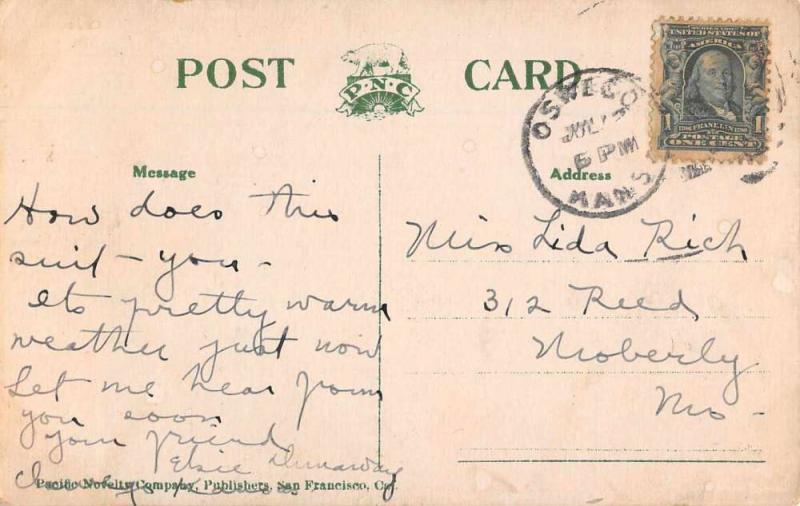 POST CARD
P·N·C
SERIES 1902
UNITED STATES OF
AMERICA
1 FRANKLIN 1
POSTAGE
ONE CENT
OSWEGO
JUL
6 PM
KANS
Message
Address
How does this
suit - you -
its pretty warm
weather just now
Let me hear from
you soon
your friend
Elsie Dunaway
Miss Lida Rich
312 Reed
Moberly
Mo -
Pacific Novelty Company, Publishers, San Francisco, Cal.